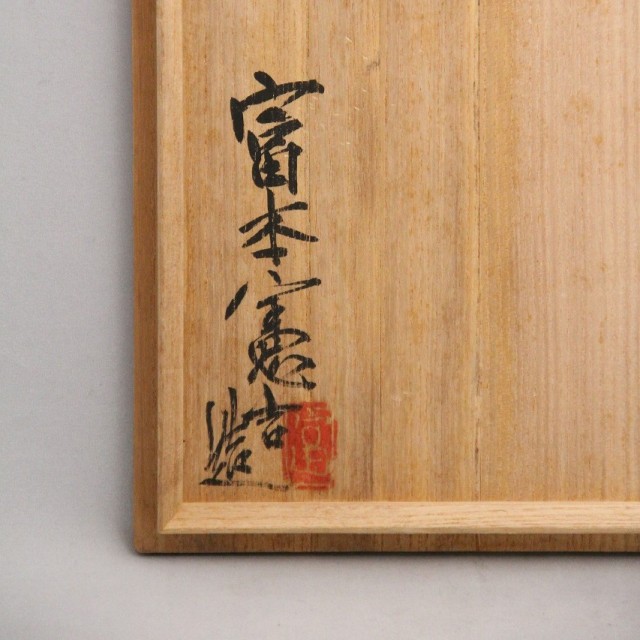 富本憲吉造